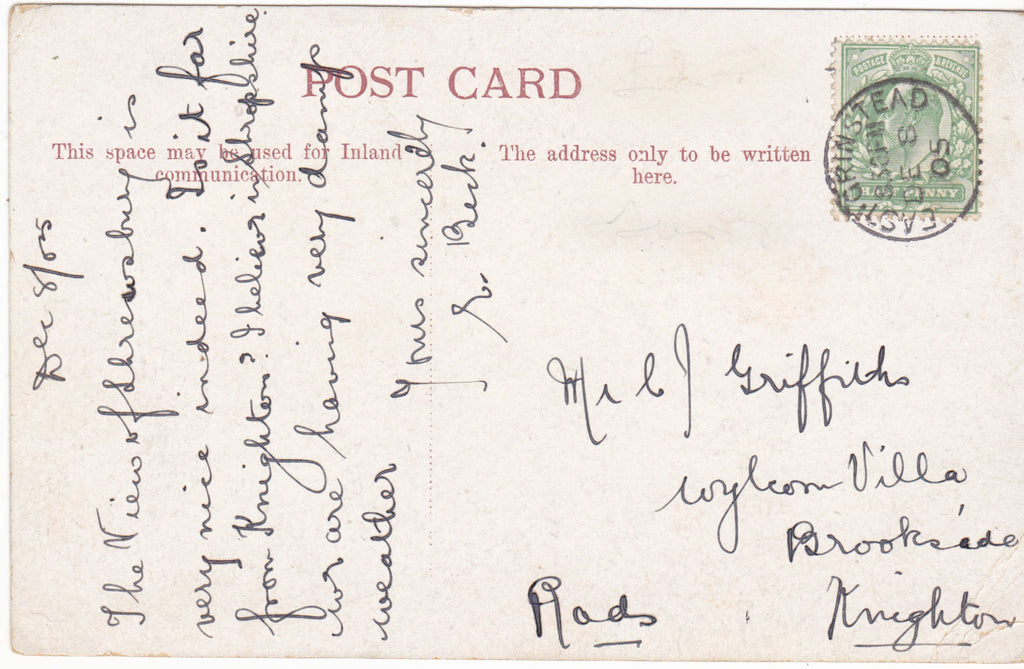 POST CARD
This space may be used for Inland
communication.
The address only to be written
here.
POSTAGE & REVENUE
HALFPENNY
EAST GRINSTEAD
DE 8
05
Dec 8/05
The View of Shrewsbury is
very nice indeed. Is it far
from Knighton? I believe in Shropshire.
we are having very damp
weather
Yours sincerely
E. Beck.
Mr C J Griffiths
Wylcom Villa
Brookside
Knighton
Rads